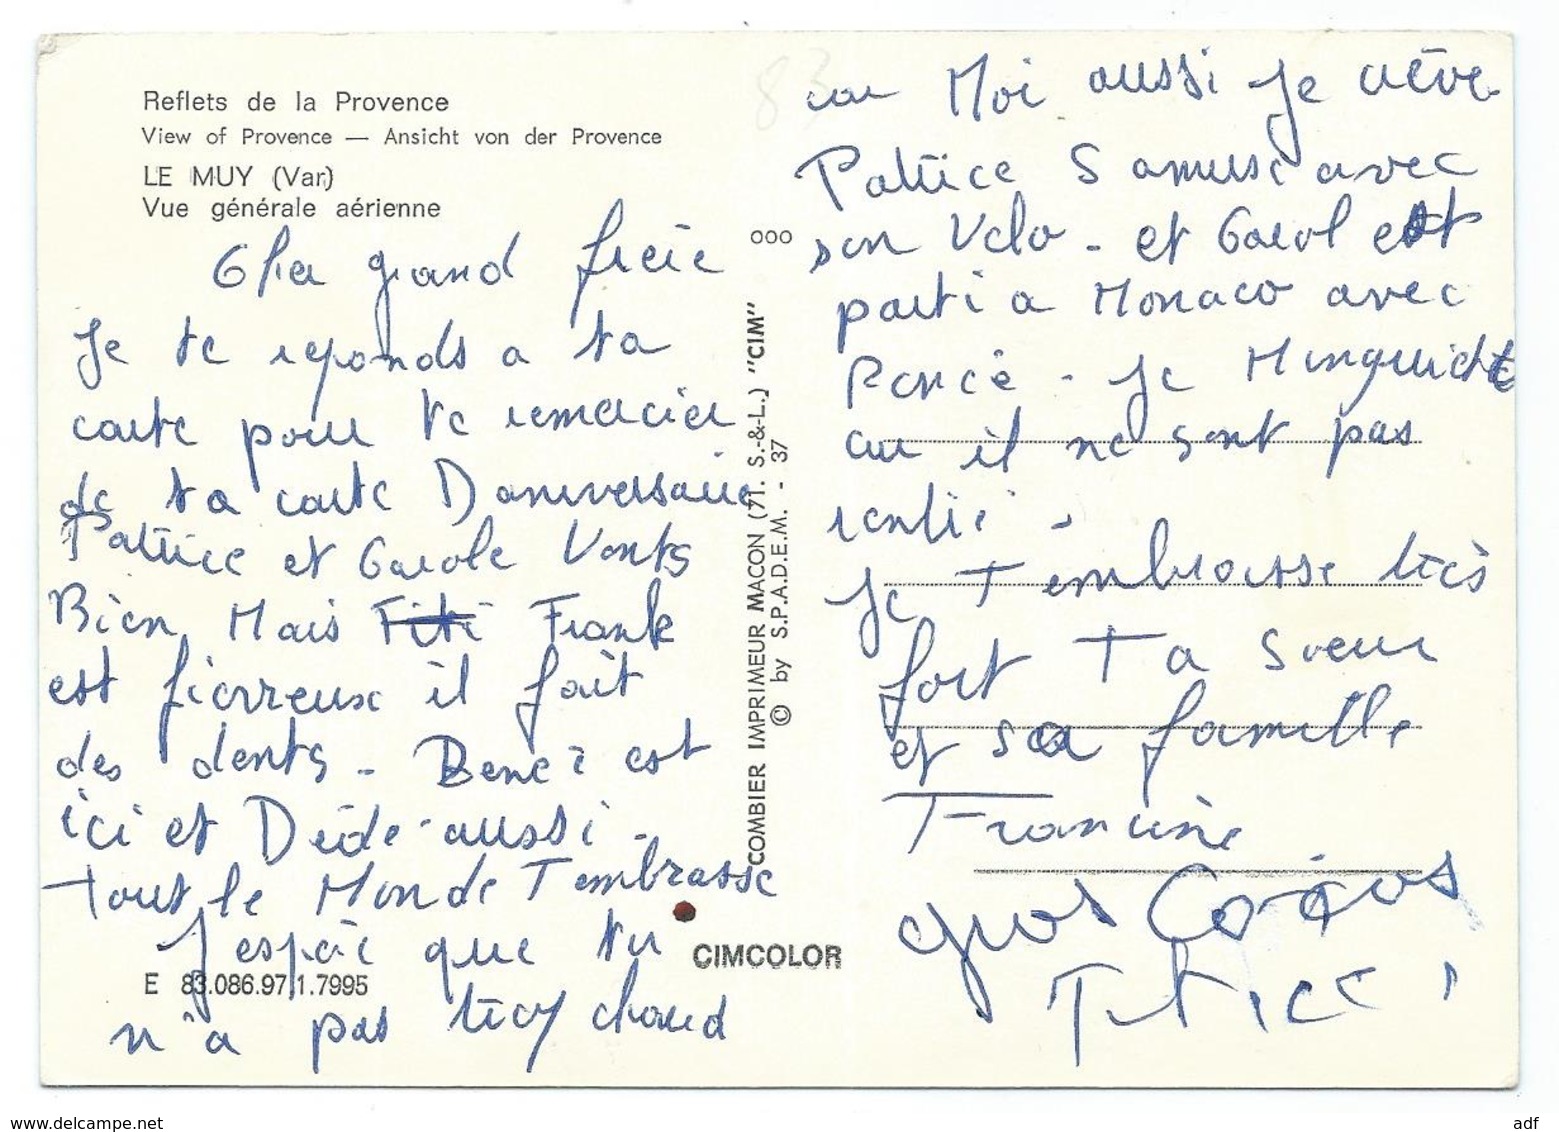 Reflets de la Provence
View of Provence — Ansicht von der Provence
LE MUY (Var)
Vue générale aérienne
Cher grand frère
Je te reponds a ta
carte pour te remercier
de ta carte Danniversaire
Patrice et Carole Vonts
Bien Mais Titi Frank
est fiorreux il fait
des dents - est
ici et Dédé aussi -
Tout le Monde T embrasse
J espère que tu
n'a pas trop chaud
E 83.086.97.1.7995
CIMCOLOR
COMBIER IMPRIMEUR MACON (71. S.-&-L.) "CIM"
© by S.P.A.D.E.M. - 37
000
83
car Moi aussi Je crève
Patrice S amuse avec
son Velo - et Carol est
parti a Monaco avec
- Je M inquiete
car il ne sont pas
rentré -
Je T embrasse très
fort Ta soeur
et sa famille
Francine
gros
delcampe.net
adf